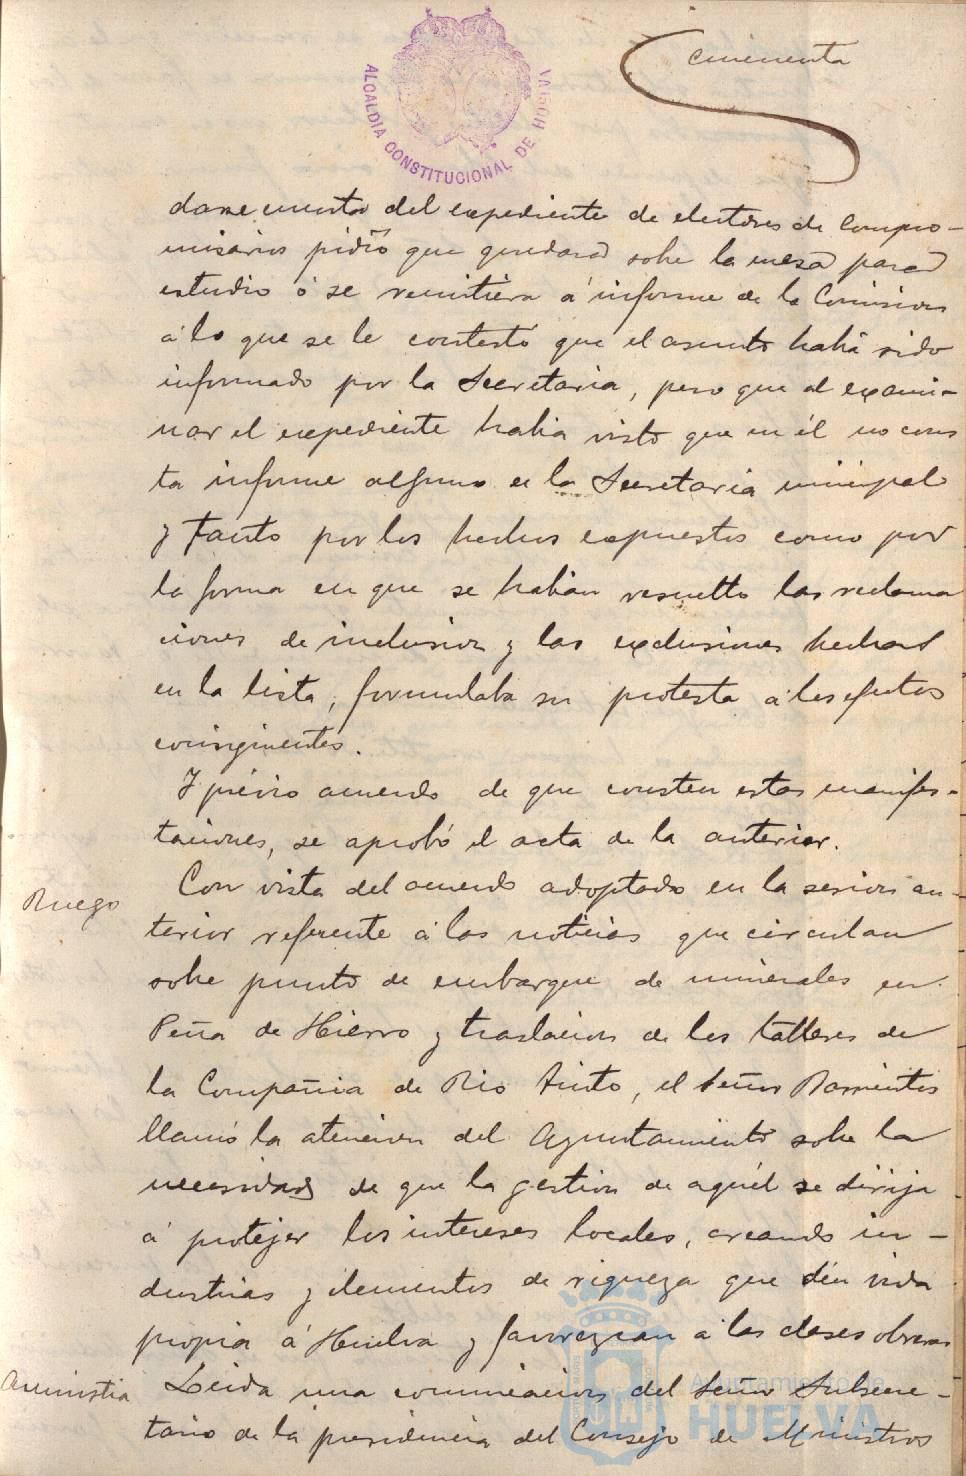 cincuenta
ALCALDIA CONSTITUCIONAL DE HUELVA
darse cuenta del expediente de electores de Compro-
misarios pidió que quedara sobre la mesa para
estudio ó se remitiera á informe de la Comision
á lo que se le contestó que el asunto habia sido
informado por la Secretaria, pero que al exami-
nar el expediente habia visto que en él no cons
ta informe alguno de la Secretaria municipal
y tanto por los hechos expuestos como por
la forma en que se habian resuelto las reclama
ciones de inclusion y las exclusiones hechas
en la lista, formulaba su protesta á los efectos
consiguientes.
Y prévio acuerdo de que consten estas manifes-
taciones, se aprobó el acta de la anterior.
Ruego
Con vista del acuerdo adoptado en la sesion an-
terior referente á las noticias que circulan
sobre punto de embarque de minerales en
Peña de Hierro y traslacion de los talleres de
la Compañia de Rio Tinto, el Señor Barrientos
llamó la atencion del Ayuntamiento sobre la
necesidad de que la gestion de aquél se dirija
á protejer los intereses locales, creando in-
dustrias y elementos de riqueza que den vida
propia á Huelva y favorezcan á las clases obreras
Amnistia
Leida una comunicacion del Señor Subsecre-
tario de la presidencia del Consejo de Ministros
Ayuntamiento de
HUELVA